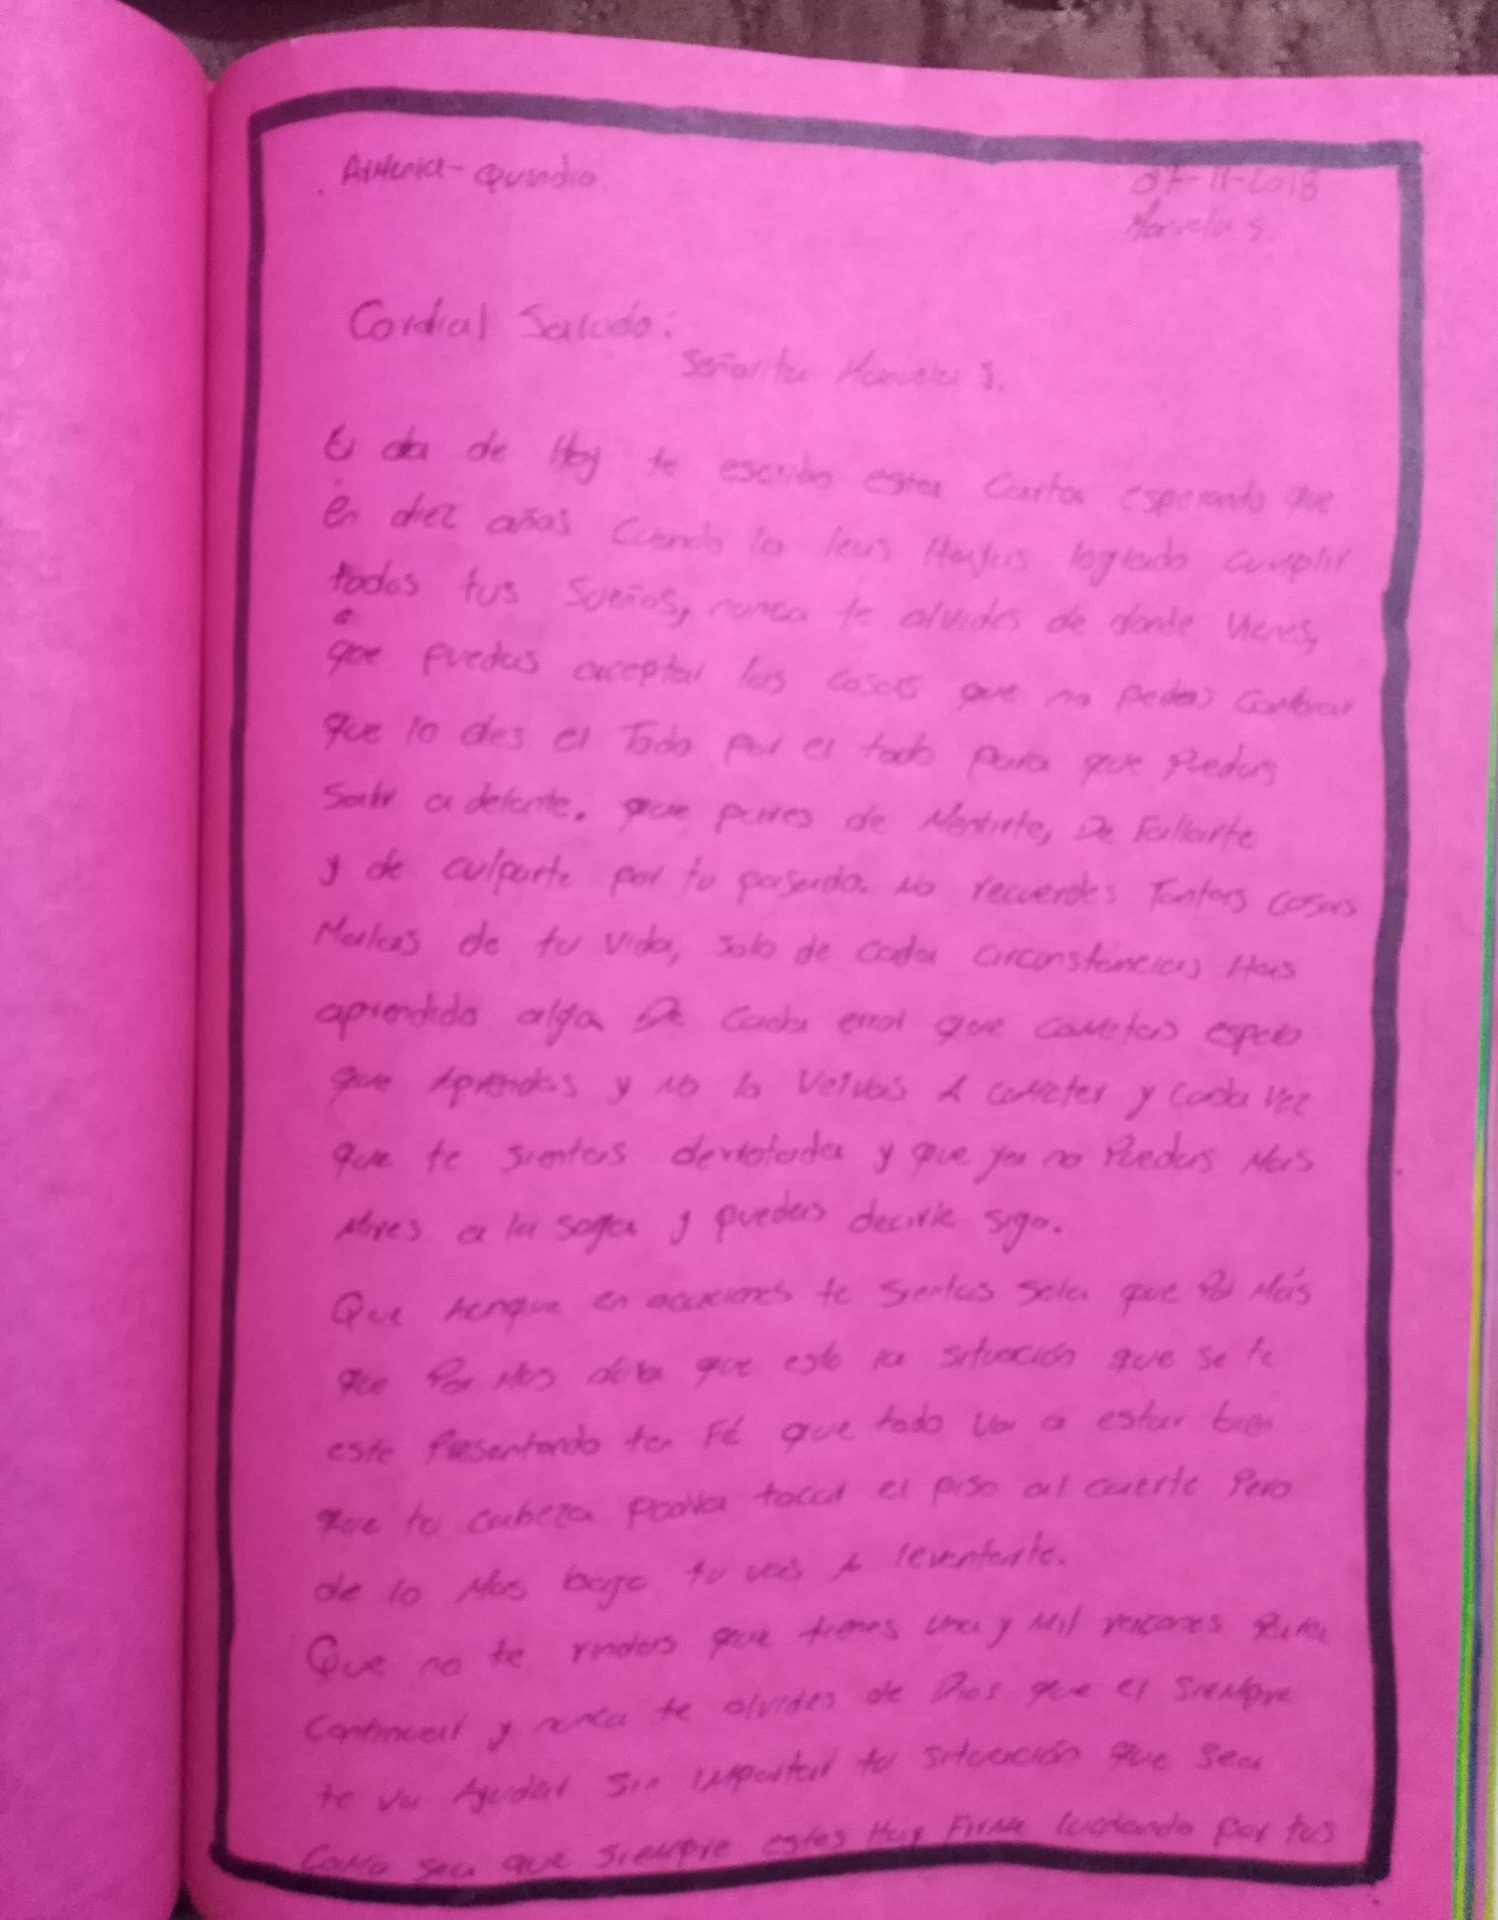 Armenia - Quindio.
07-11-2018
Marcela S.
Cordial Saludo:
Señorita Marcela S.
dia de Hoy te escribo esta Carta esperando que
en diez años Cuando la leas Hayas logrado Cumplir
todos tus Sueños, nunca te olvides de donde Vienes,
que puedas aceptar las cosas que no pedas Cambiar
que lo des el Todo por el todo para que Puedas
Salir a delante. que pares de Mentirte, De Fallarte
y de culparte por tu pasado. No recuerdes Tantas cosas
Malas de tu vida, solo de cada circunstancias Has
aprendido algo. De Cada error que cometas espero
que Aprendas y No lo Velvas A cometer y Cada Vez
que te sientas derrotada y que ya no Puedas Mas
Mires a la soga y puedas decirle sigo.
Que Aunque en ocaciones te sientas sola que Por Más
que Por Mas que este la situación que se te
este Presentando ten Fé que todo va a estar bien
que tu cabeza podra tocar el piso al caerte Pero
de lo Mas bajo tu vas A levantarte.
Que no te rindas que tienes una y Mil razones Para
Continuar y nunca te olvides de Dios que el siempre
te va Ayudar Sin importar tu situación que sea
Como sea que siempre estes Hay Firme luchando por tus